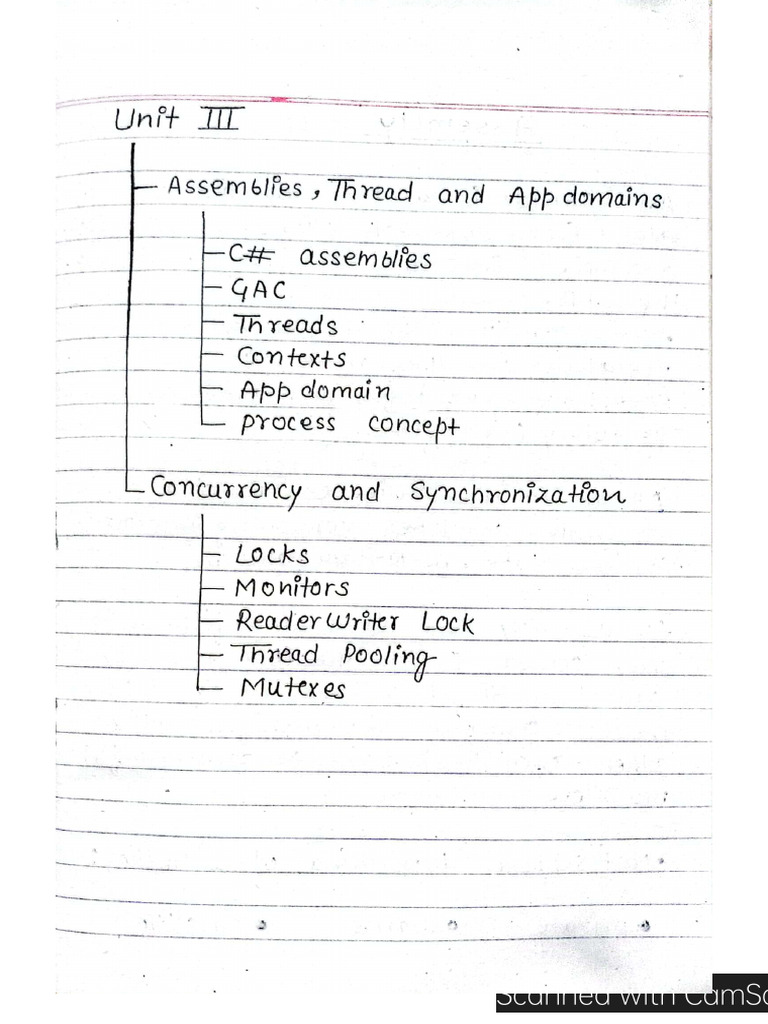 Unit III
Assemblies, Thread and App domains
C# assemblies
GAC
Threads
Contexts
App domain
process concept
Concurrency and Synchronization
Locks
Monitors
ReaderWriter Lock
Thread Pooling
Mutexes
Scanned with CamSc